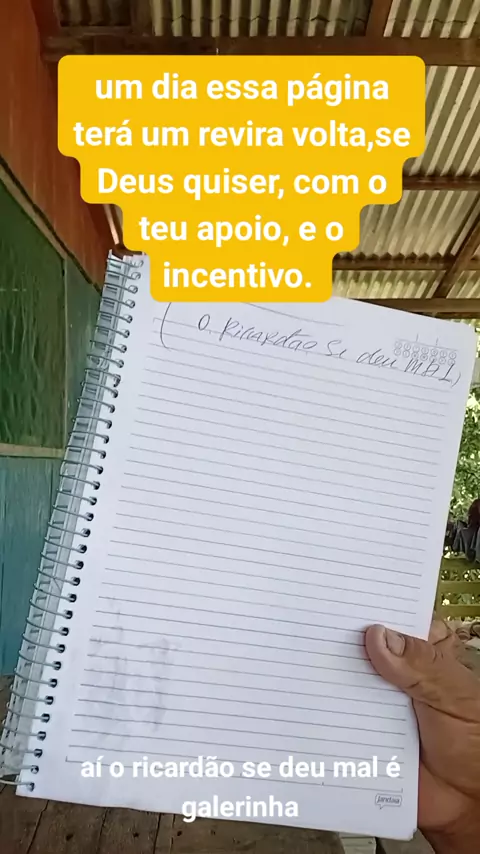 um dia essa página
terá um revira volta,se
Deus quiser, com o
teu apoio, e o
incentivo.
O Ricardão Se deu MAL,
aí o ricardão se deu mal é
galerinha
jandaia